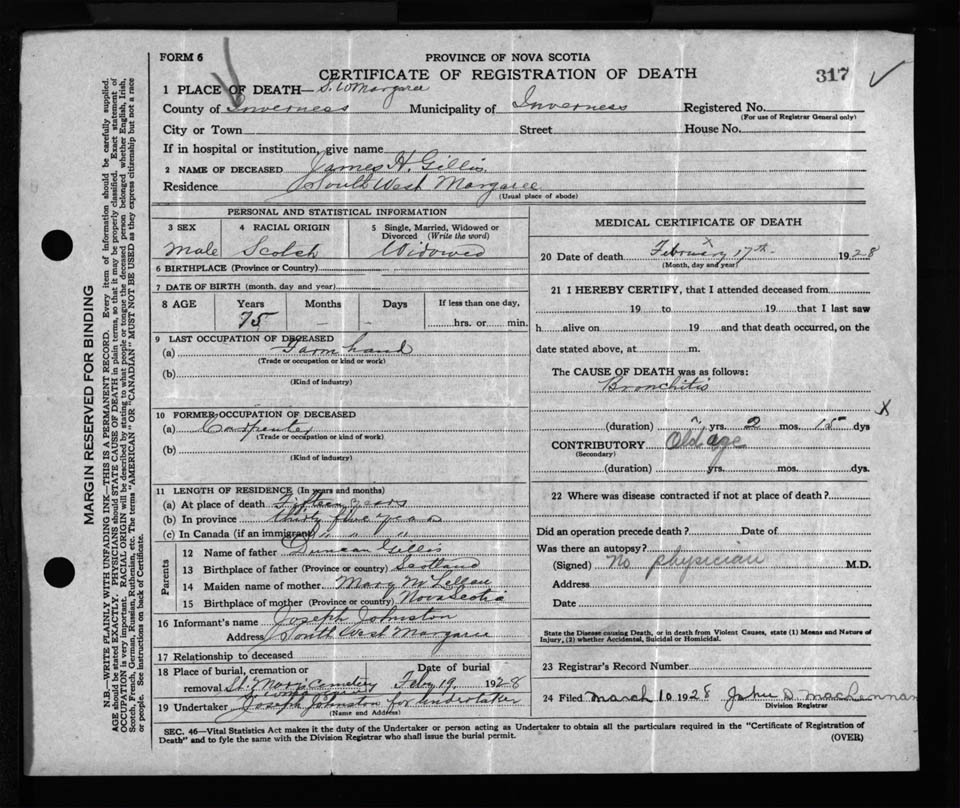 FORM 6
PROVINCE OF NOVA SCOTIA
CERTIFICATE OF REGISTRATION OF DEATH
317
1 PLACE OF DEATH— S. W Margaree
County of Inverness Municipality of Inverness Registered No.
(For use of Registrar General only)
City or Town Street House No.
If in hospital or institution, give name
2 NAME OF DECEASED James H. Gillis
Residence South West Margaree
(Usual place of abode)
PERSONAL AND STATISTICAL INFORMATION
3 SEX 4 RACIAL ORIGIN 5 Single, Married, Widowed or Divorced (Write the word)
Male Scotch Widowed
6 BIRTHPLACE (Province or Country)
7 DATE OF BIRTH (month, day and year)
8 AGE Years Months Days If less than one day,
75 — — hrs. or min.
9 LAST OCCUPATION OF DECEASED
(a) Farm hand
(Trade or occupation or kind or work)
(b)
(Kind of industry)
10 FORMER OCCUPATION OF DECEASED
(a) Carpenter
(Trade or occupation or kind of work)
(b)
(Kind of industry)
11 LENGTH OF RESIDENCE (In years and months)
(a) At place of death Fifteen years
(b) In province thirty five years
(c) In Canada (if an immigrant) " " "
Parents
12 Name of father Duncan Gillis
13 Birthplace of father (Province or country) Scotland
14 Maiden name of mother Mary McLellan
15 Birthplace of mother (Province or country) Nova Scotia
16 Informant's name Joseph Johnston
Address South West Margaree
17 Relationship to deceased
18 Place of burial, cremation or removal St. Mary's Cemetery Date of burial Feby 19 1928
19 Undertaker Joseph Johnston for undertaker
(Name and Address)
MEDICAL CERTIFICATE OF DEATH
20 Date of death February 17th 1928
(Month, day and year)
21 I HEREBY CERTIFY, that I attended deceased from
19 to 19 that I last saw
h alive on 19 and that death occurred, on the
date stated above, at m.
The CAUSE OF DEATH was as follows:
Bronchitis
(duration) yrs. 2 mos. 15 dys X
CONTRIBUTORY Old age
(Secondary)
(duration) yrs. mos. dys.
22 Where was disease contracted if not at place of death?
Did an operation precede death? Date of
Was there an autopsy?
(Signed) No physician M.D.
Address
Date
State the Disease causing Death, or in death from Violent Causes, state (1) Means and Nature of
Injury, (2) whether Accidental, Suicidal or Homicidal.
23 Registrar's Record Number
24 Filed March 10 1928 John D. MacLennan
Division Registrar
SEC. 46—Vital Statistics Act makes it the duty of the Undertaker or person acting as Undertaker to obtain all the particulars required in the "Certificate of Registration of
Death" and to fyle the same with the Division Registrar who shall issue the burial permit.
(OVER)
MARGIN RESERVED FOR BINDING
N.B.—WRITE PLAINLY WITH UNFADING INK—THIS IS A PERMANENT RECORD. Every item of information should be carefully supplied.
AGE should be stated EXACTLY. PHYSICIANS should STATE CAUSE OF DEATH in plain terms, so that it may be properly classified. Exact statement of
OCCUPATION is very important. RACIAL ORIGIN will be described by stating to what people or tongue the deceased person belonged whether English, Irish,
Scotch, French, German, Russian, Ruthenian, etc. The terms "AMERICAN" OR "CANADIAN" MUST NOT BE USED as they express citizenship but not a race
or people. See instructions on back of Certificate.